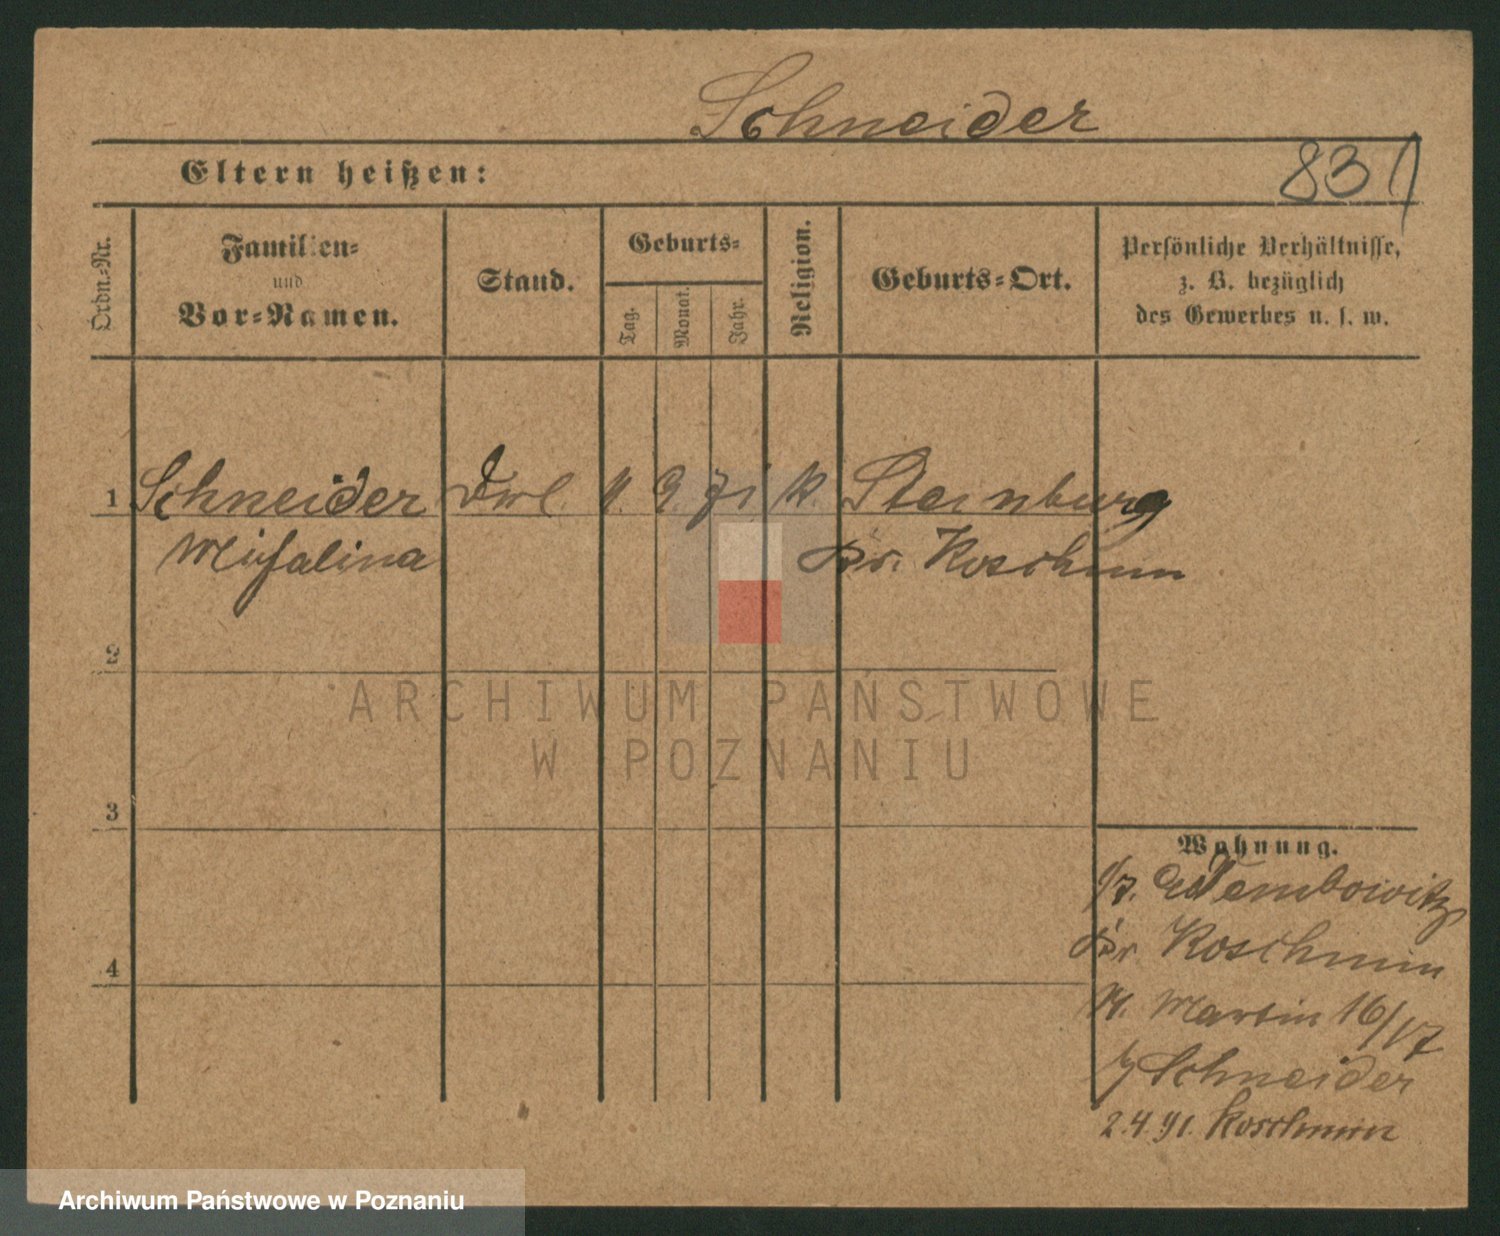 Schneider
Eltern heißen:
83
Ordn.-Nr.
Familien-
und
Vor-Namen.
Stand.
Geburts-
Tag.
Monat.
Jahr.
Religion.
Geburts-Ort.
Persönliche Verhältnisse,
z. B. bezüglich
des Gewerbes u. s. w.
1 Schneider 9. 71 k. Steinburg
Michalina Kr. Koschmin
2
ARCHIWUM PAŃSTWOWE
W POZNANIU
3
Wohnung.
Kr. Koschmin
4
Martin 16/17
Schneider
2.4.91. Koschmin
Archiwum Państwowe w Poznaniu